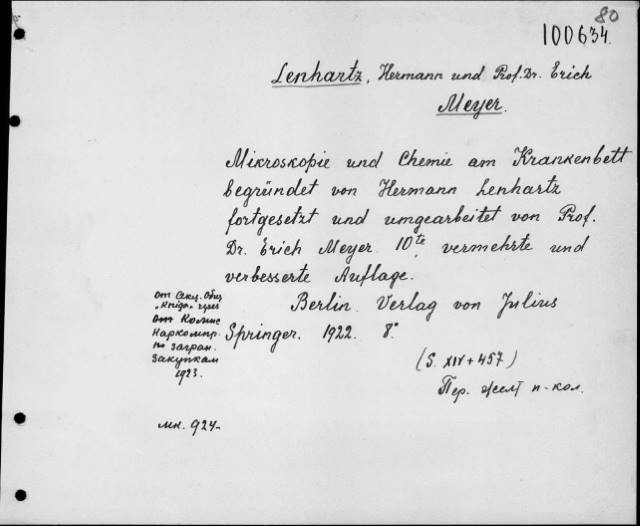 80
100634.
Lenhartz, Hermann und Prof. Dr. Erich
Meyer.
Mikroskopie und Chemie am Krankenbett
begründet von Hermann Lenhartz
fortgesetzt und umgearbeitet von Prof.
Dr. Erich Meyer 10te, vermehrte und
verbesserte Auflage.
Berlin. Verlag von Julius
Springer. 1922. 8°
(S. XIV + 457)
Пер. желт п-кол.
от Акц. Общ
"Книга" через
Комис
Наркомпр.
по загран.
закупкам
1923.
мк. 924-